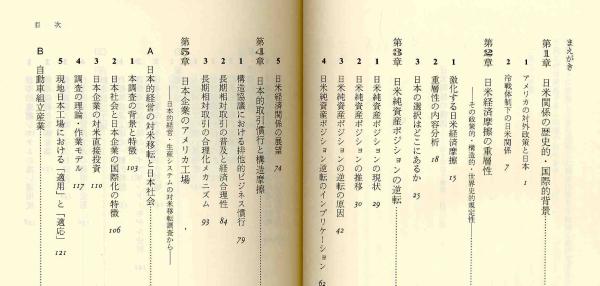 まえがき
第1章 日米関係の歴史的・国際的背景
1 アメリカの対外政策と日本 1
2 冷戦体制下の日米関係 7
第2章 日米経済摩擦の重層性
――その政策的・構造的・世界史的規定性――
1 激化する日米経済摩擦 15
2 重層性の内容分析 18
3 日本の選択はどこにあるか 25
第3章 日米純資産ポジションの逆転
1 日米純資産ポジションの現状 29
2 日米純資産ポジションの推移 30
3 日米純資産ポジションの逆転の原因 42
4 日米純資産ポジション逆転のインプリケーション 62
5 日米経済関係の展望 74
第4章 日本的取引慣行と構造摩擦
1 構造協議における排他的ビジネス慣行 79
2 長期相対取引の普及と経済合理性 84
3 長期相対取引の合理化メカニズム 93
第5章 日本企業のアメリカ工場
――日本的経営・生産システムの対米移転調査から――
A 日本的経営の対米移転と日本社会
1 本調査の背景と特徴 103
2 日本社会と日本企業の国際化の特徴 106
3 日本企業の対米直接投資 110
4 調査の理論・作業モデル 117
5 現地日本工場における「適用」と「適応」 121
B 自動車組立産業
目次